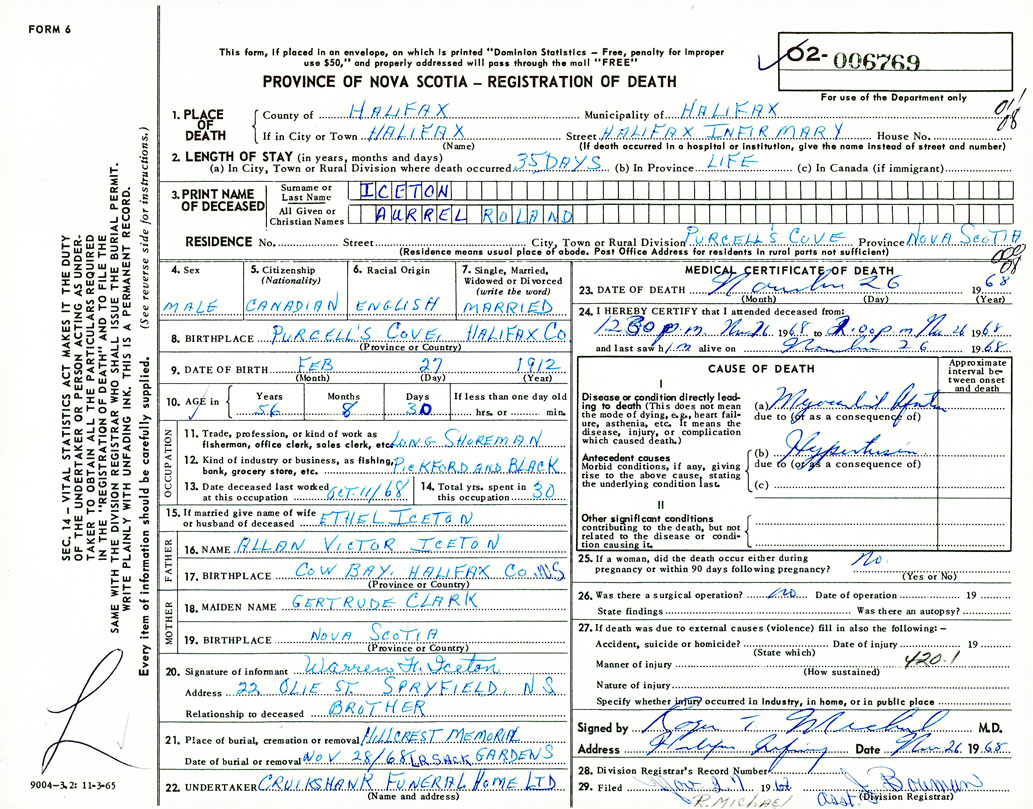 FORM 6
This form, if placed in an envelope, on which is printed "Dominion Statistics – Free, penalty for improper
use $50," and properly addressed will pass through the mail "FREE"
PROVINCE OF NOVA SCOTIA – REGISTRATION OF DEATH
02- 006769
For use of the Department only
SEC. 14 – VITAL STATISTICS ACT MAKES IT THE DUTY
OF THE UNDERTAKER OR PERSON ACTING AS UNDER-
TAKER TO OBTAIN ALL THE PARTICULARS REQUIRED
IN THE "REGISTRATION OF DEATH" AND TO FILE THE
SAME WITH THE DIVISION REGISTRAR WHO SHALL ISSUE THE BURIAL PERMIT.
WRITE PLAINLY WITH UNFADING INK. THIS IS A PERMANENT RECORD.
Every item of information should be carefully supplied. (See reverse side for instructions.)
1. PLACE OF DEATH
County of HALIFAX Municipality of HALIFAX
If in City or Town HALIFAX Street HALIFAX INFIRMARY House No.
(Name) (If death occurred in a hospital or institution, give the name instead of street and number)
2. LENGTH OF STAY (in years, months and days)
(a) In City, Town or Rural Division where death occurred 35 DAYS (b) In Province LIFE (c) In Canada (if immigrant)
3. PRINT NAME OF DECEASED
Surname or Last Name ICETON
All Given or Christian Names AURREL ROLAND
RESIDENCE No. Street City, Town or Rural Division PURCELL'S COVE Province NOVA SCOTIA
(Residence means usual place of abode. Post Office Address for residents in rural parts not sufficient)
4. Sex 5. Citizenship (Nationality) 6. Racial Origin 7. Single, Married, Widowed or Divorced (write the word)
MALE CANADIAN ENGLISH MARRIED
8. BIRTHPLACE PURCELL'S COVE, HALIFAX CO
(Province or Country)
9. DATE OF BIRTH FEB 27 1912
(Month) (Day) (Year)
10. AGE in Years Months Days If less than one day old
56 8 30 hrs. or min.
OCCUPATION
11. Trade, profession, or kind of work as
fisherman, office clerk, sales clerk, etc. LONG SHOREMAN
12. Kind of industry or business, as fishing,
bank, grocery store, etc. PICKFORD AND BLACK
13. Date deceased last worked at this occupation OCT. 11/68 14. Total yrs. spent in this occupation 30
15. If married give name of wife
or husband of deceased ETHEL ICETON
FATHER
16. NAME ALLAN VICTOR ICETON
17. BIRTHPLACE COW BAY, HALIFAX CO. N.S
(Province or Country)
MOTHER
18. MAIDEN NAME GERTRUDE CLARK
19. BIRTHPLACE NOVA SCOTIA
(Province or Country)
20. Signature of informant Warren H. Iceton
Address 22 OLIE ST. SPRYFIELD, NS
Relationship to deceased BROTHER
21. Place of burial, cremation or removal HILLCREST MEMORIAL
Date of burial or removal NOV 28/68 GARDENS
22. UNDERTAKER CRUIKSHANK FUNERAL HOME LTD
(Name and address)
9004-3.2: 11-3-65
MEDICAL CERTIFICATE OF DEATH
23. DATE OF DEATH November 26 1968
(Month) (Day) (Year)
24. I HEREBY CERTIFY that I attended deceased from:
12 30 p.m. Nov 26 1968 to 1.00 p.m Nov 26 1968
and last saw him alive on November 26 1968
CAUSE OF DEATH
Approximate interval between onset and death
I
Disease or condition directly lead-
ing to death (This does not mean
the mode of dying, e.g., heart fail-
ure, asthenia, etc. It means the
disease, injury, or complication
which caused death.)
(a) Myocardial
due to (or as a consequence of)
Antecedent causes
Morbid conditions, if any, giving
rise to the above cause, stating
the underlying condition last.
(b) Hypertension
due to (or as a consequence of)
(c)
II
Other significant conditions
contributing to the death, but not
related to the disease or condi-
tion causing it.
25. If a woman, did the death occur either during
pregnancy or within 90 days following pregnancy? No.
(Yes or No)
26. Was there a surgical operation? no Date of operation 19
State findings Was there an autopsy?
27. If death was due to external causes (violence) fill in also the following: –
Accident, suicide or homicide? Date of injury 19
(State which)
Manner of injury 420.1
(How sustained)
Nature of injury
Specify whether injury occurred in Industry, in home, or in public place
Signed by Roger T. Michael M.D.
Address Halifax Infirmary Date Nov. 26 1968
28. Division Registrar's Record Number
29. Filed Nov 27 1968 J. Bowman
R. MICHAEL asst. (Division Registrar)